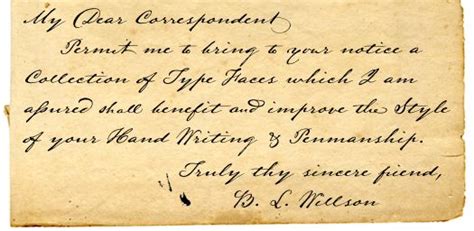 My Dear Correspondent
Permit me to bring to your notice a
Collection of Type Faces which I am
assured shall benefit and improve the Style
of your Hand Writing & Penmanship.
Truly thy sincere friend,
B. L. Willson